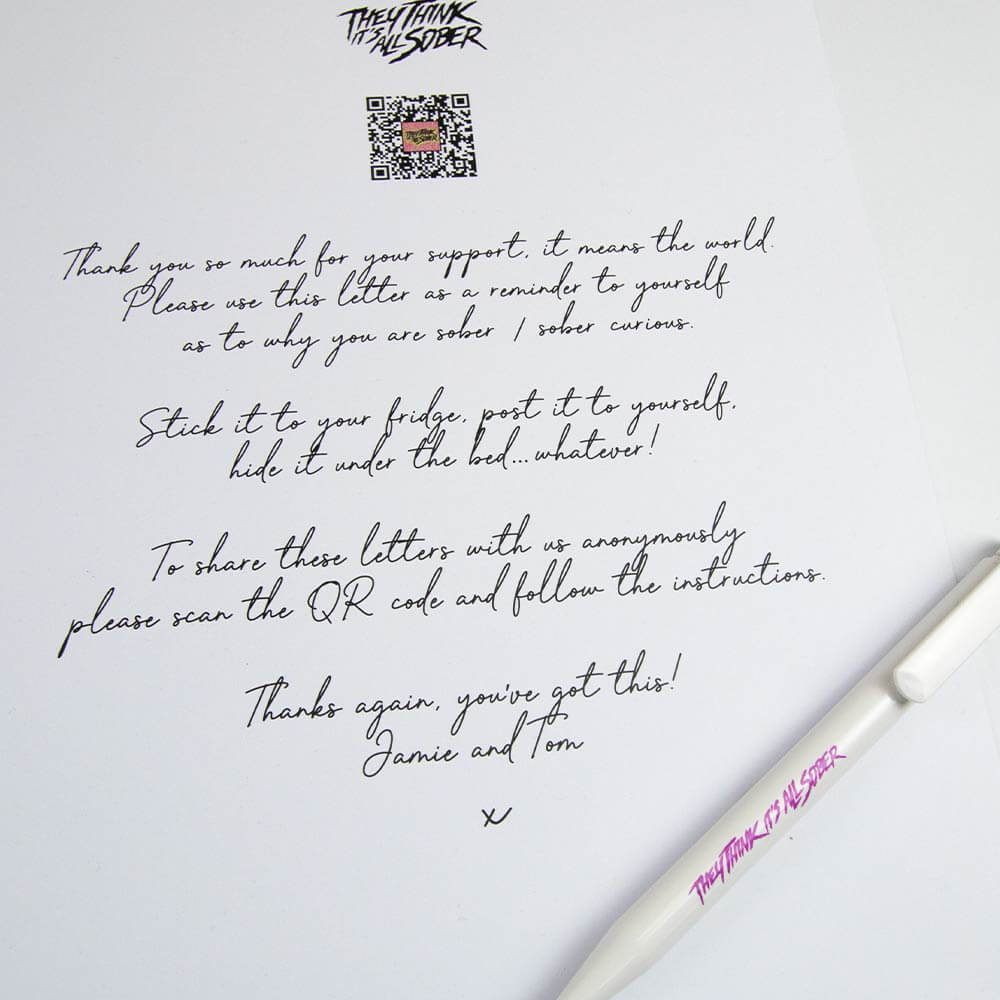 THEY THINK
IT'S ALL SOBER
Thank you so much for your support, it means the world.
Please use this letter as a reminder to yourself
as to why you are sober / sober curious.
Stick it to your fridge, post it to yourself,
hide it under the bed...whatever!
To share these letters with us anonymously
please scan the QR code and follow the instructions.
Thanks again, you've got this!
Jamie and Tom
x
THEY THINK IT'S ALL SOBER